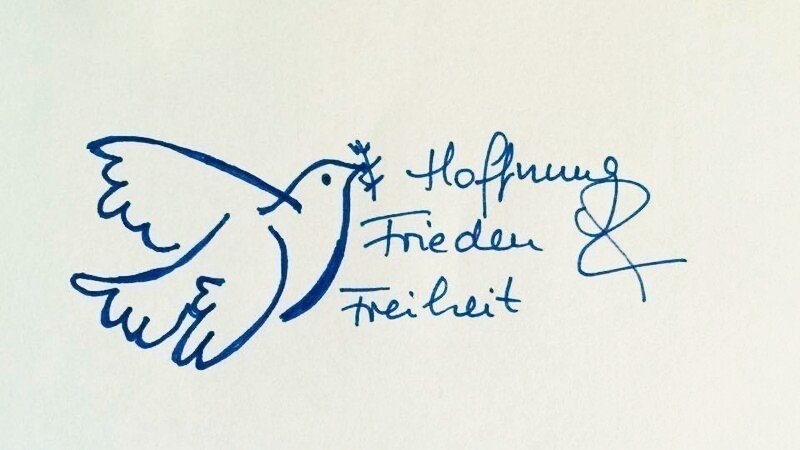 Hoffnung
Frieden &
Freiheit